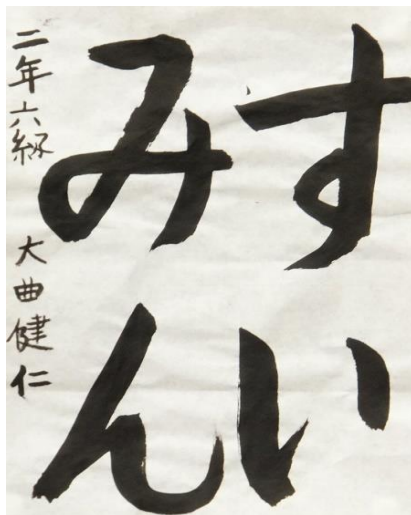 すい
みん
二年六級 大曲健仁